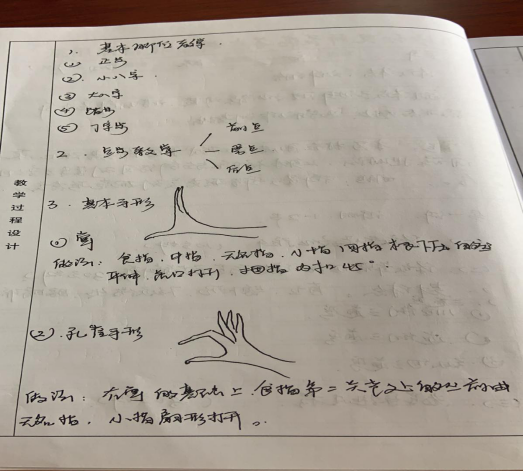 1. 基本脚位教学.
① 正步
②. 小八字.
③ 大八字
④ 踏步
⑤ 丁字步
2. 点步教学 前点
旁点
后点
教学过程设计
3. 基本手形
① 掌
做法: 食指, 中指, 无名指, 小指 四指
虎口打开, 拇指内扣45°.
②. 孔雀手形
做法: 在掌的基础上, 食指第二关节
无名指, 小指扇形打开。